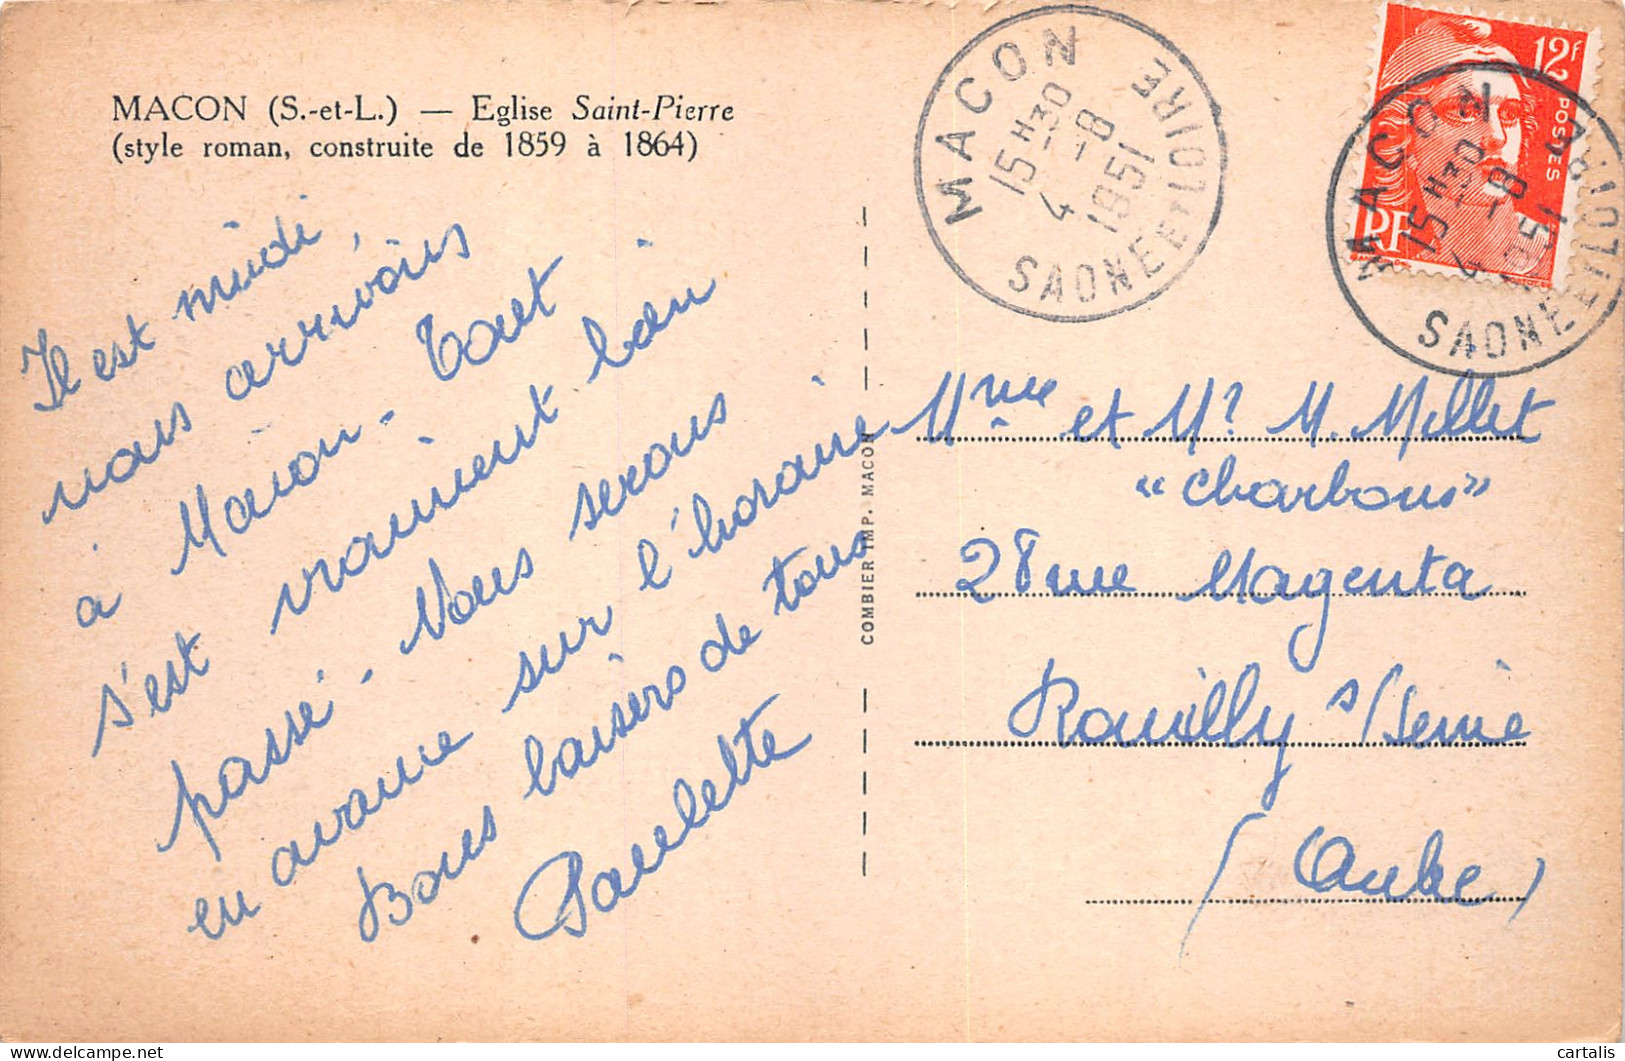 MACON (S.-et-L.) — Eglise Saint-Pierre
(style roman, construite de 1859 à 1864)
Il est midi,
nous arrivons
à Macon. Tout
s'est vraiment bien
passé. Nous serons
en avance sur l'horaire
Bons baisers de tous
Paulette
COMBIER IMP. MACON
MACON
15 H 30
4 -8
1951
SAONE ET LOIRE
12F
POSTES
RF
MACON
15 H 30
4 -8
1951
SAONE ET LOIRE
Mme et Mr M. Millet
"Charbons"
28 rue Magenta
Romilly s/Seine
(Aube)
cartalis
delcampe.net